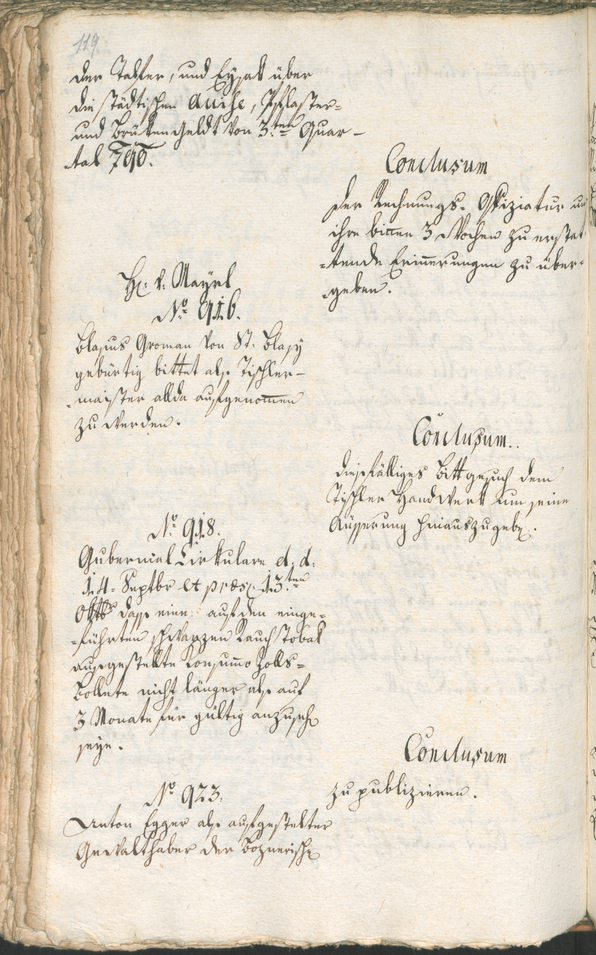 119.
der Talfer, und Eysak über
die städtischen Auise, Pflaster-
und Brükengeldt von 3:ten Quar-
tal 790.
Conclusum
Der Rechnungs-Offiziatur um
ihre binen 3 Wochen zu erstat
-tende Erinerungen zu über-
-geben.
Hr: v: Mayrl
No. 916.
Blasius Groman von St: Blasy
gebürtig bittet als Tischler-
maister allda aufgenomen
zu werden.
Conclusum.
diesfälliges Bittgesuch dem
Tischler Handwerk um seine
Äusserung hinauszugeben.
No. 918.
Gubernial Cirkulare d. d:
14. Septbr et præs: 13ten
8bris dass eine auf den einge-
-führten schwarzen Rauchtobak
ausgestellte Konsumo Zolls-
Bollete nicht länger als auf
3 Monate für gültig anzusehen
seye.
Conclusum
zu publizieren.
No. 923.
Anton Egger als aufgestelter
Gewalthaber der Boznerischen